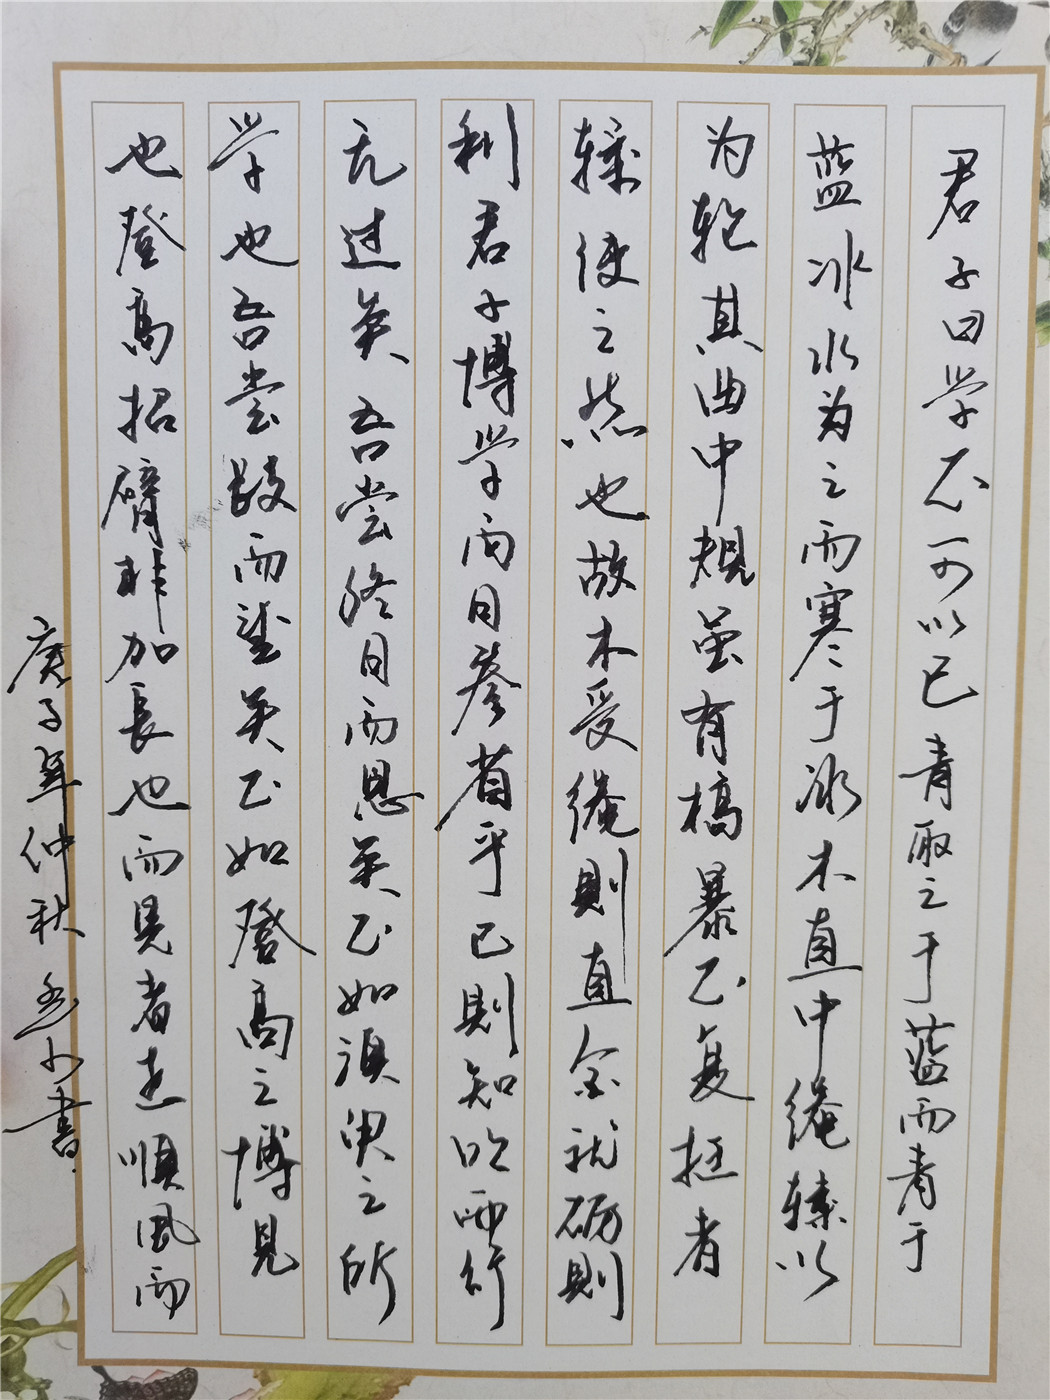 君子曰学不可以已青取之于蓝而青于
蓝冰水为之而寒于冰木直中绳輮以
为轮其曲中规虽有槁暴不复挺者
輮使之然也故木受绳則直金就砺則
利君子博学而日参省乎己則知明而行
无过矣吾尝终日而思矣不如须臾之所
学也吾尝跂而望矣不如登高之博見
也登高招臂非加長也而見者远順風而
庚子年仲秋 书